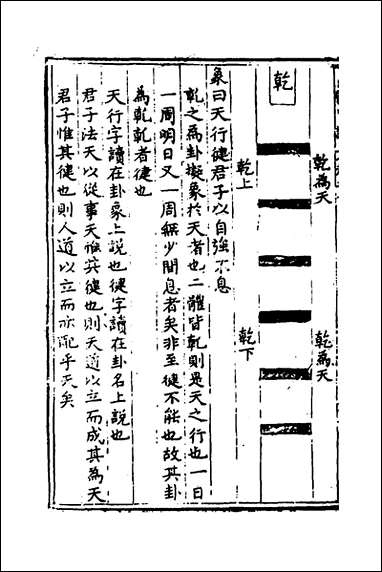 乾
乾為天
乾為天
乾上
乾下
象曰天行健君子以自強不息
乾之為卦擬象於天者也二體皆乾則是天之行也一日
一周明日又一周無少間息者矣非至健不能也故其卦
為乾乾者健也
天行字讀在卦象上說也健字讀在卦名上說也
君子法天以從事天惟其健也則天道以立而成其為天
君子惟其健也則人道以立而亦配乎天矣